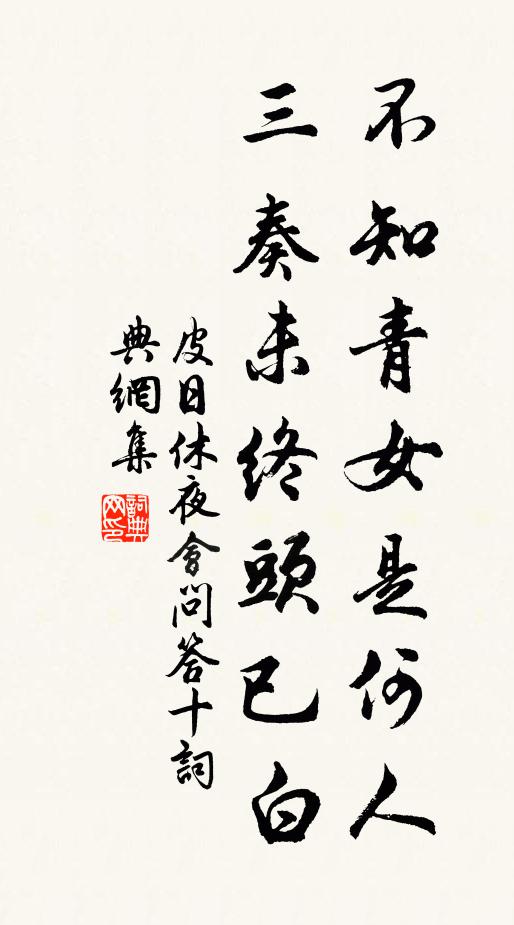 不知青女是何人
三奏未終頭已白
皮日休夜會問答十詞
典網集
詞典
网印